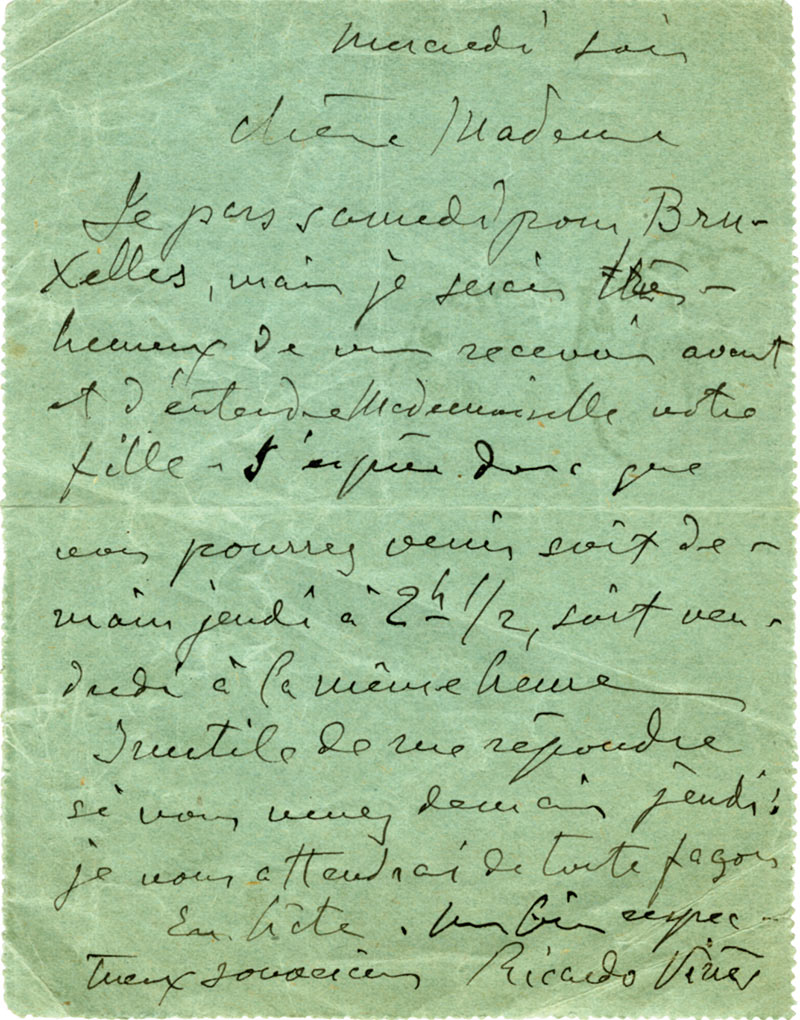 Mercredi soir
Chère Madame
Je pars samedi pour Bru-
xelles, mais je serais très-
heureux de vous recevoir avant
et d'entendre Mademoiselle votre
fille - J'espère donc que
vous pourrez venir soit de-
main jeudi à 2h 1/2, soit ven-
dredi à la même heure
Inutile de me répondre
si vous venez demain jeudi:
je vous attendrai de toute façon
En hâte. respec-
tueux souvenir Ricardo Viñes